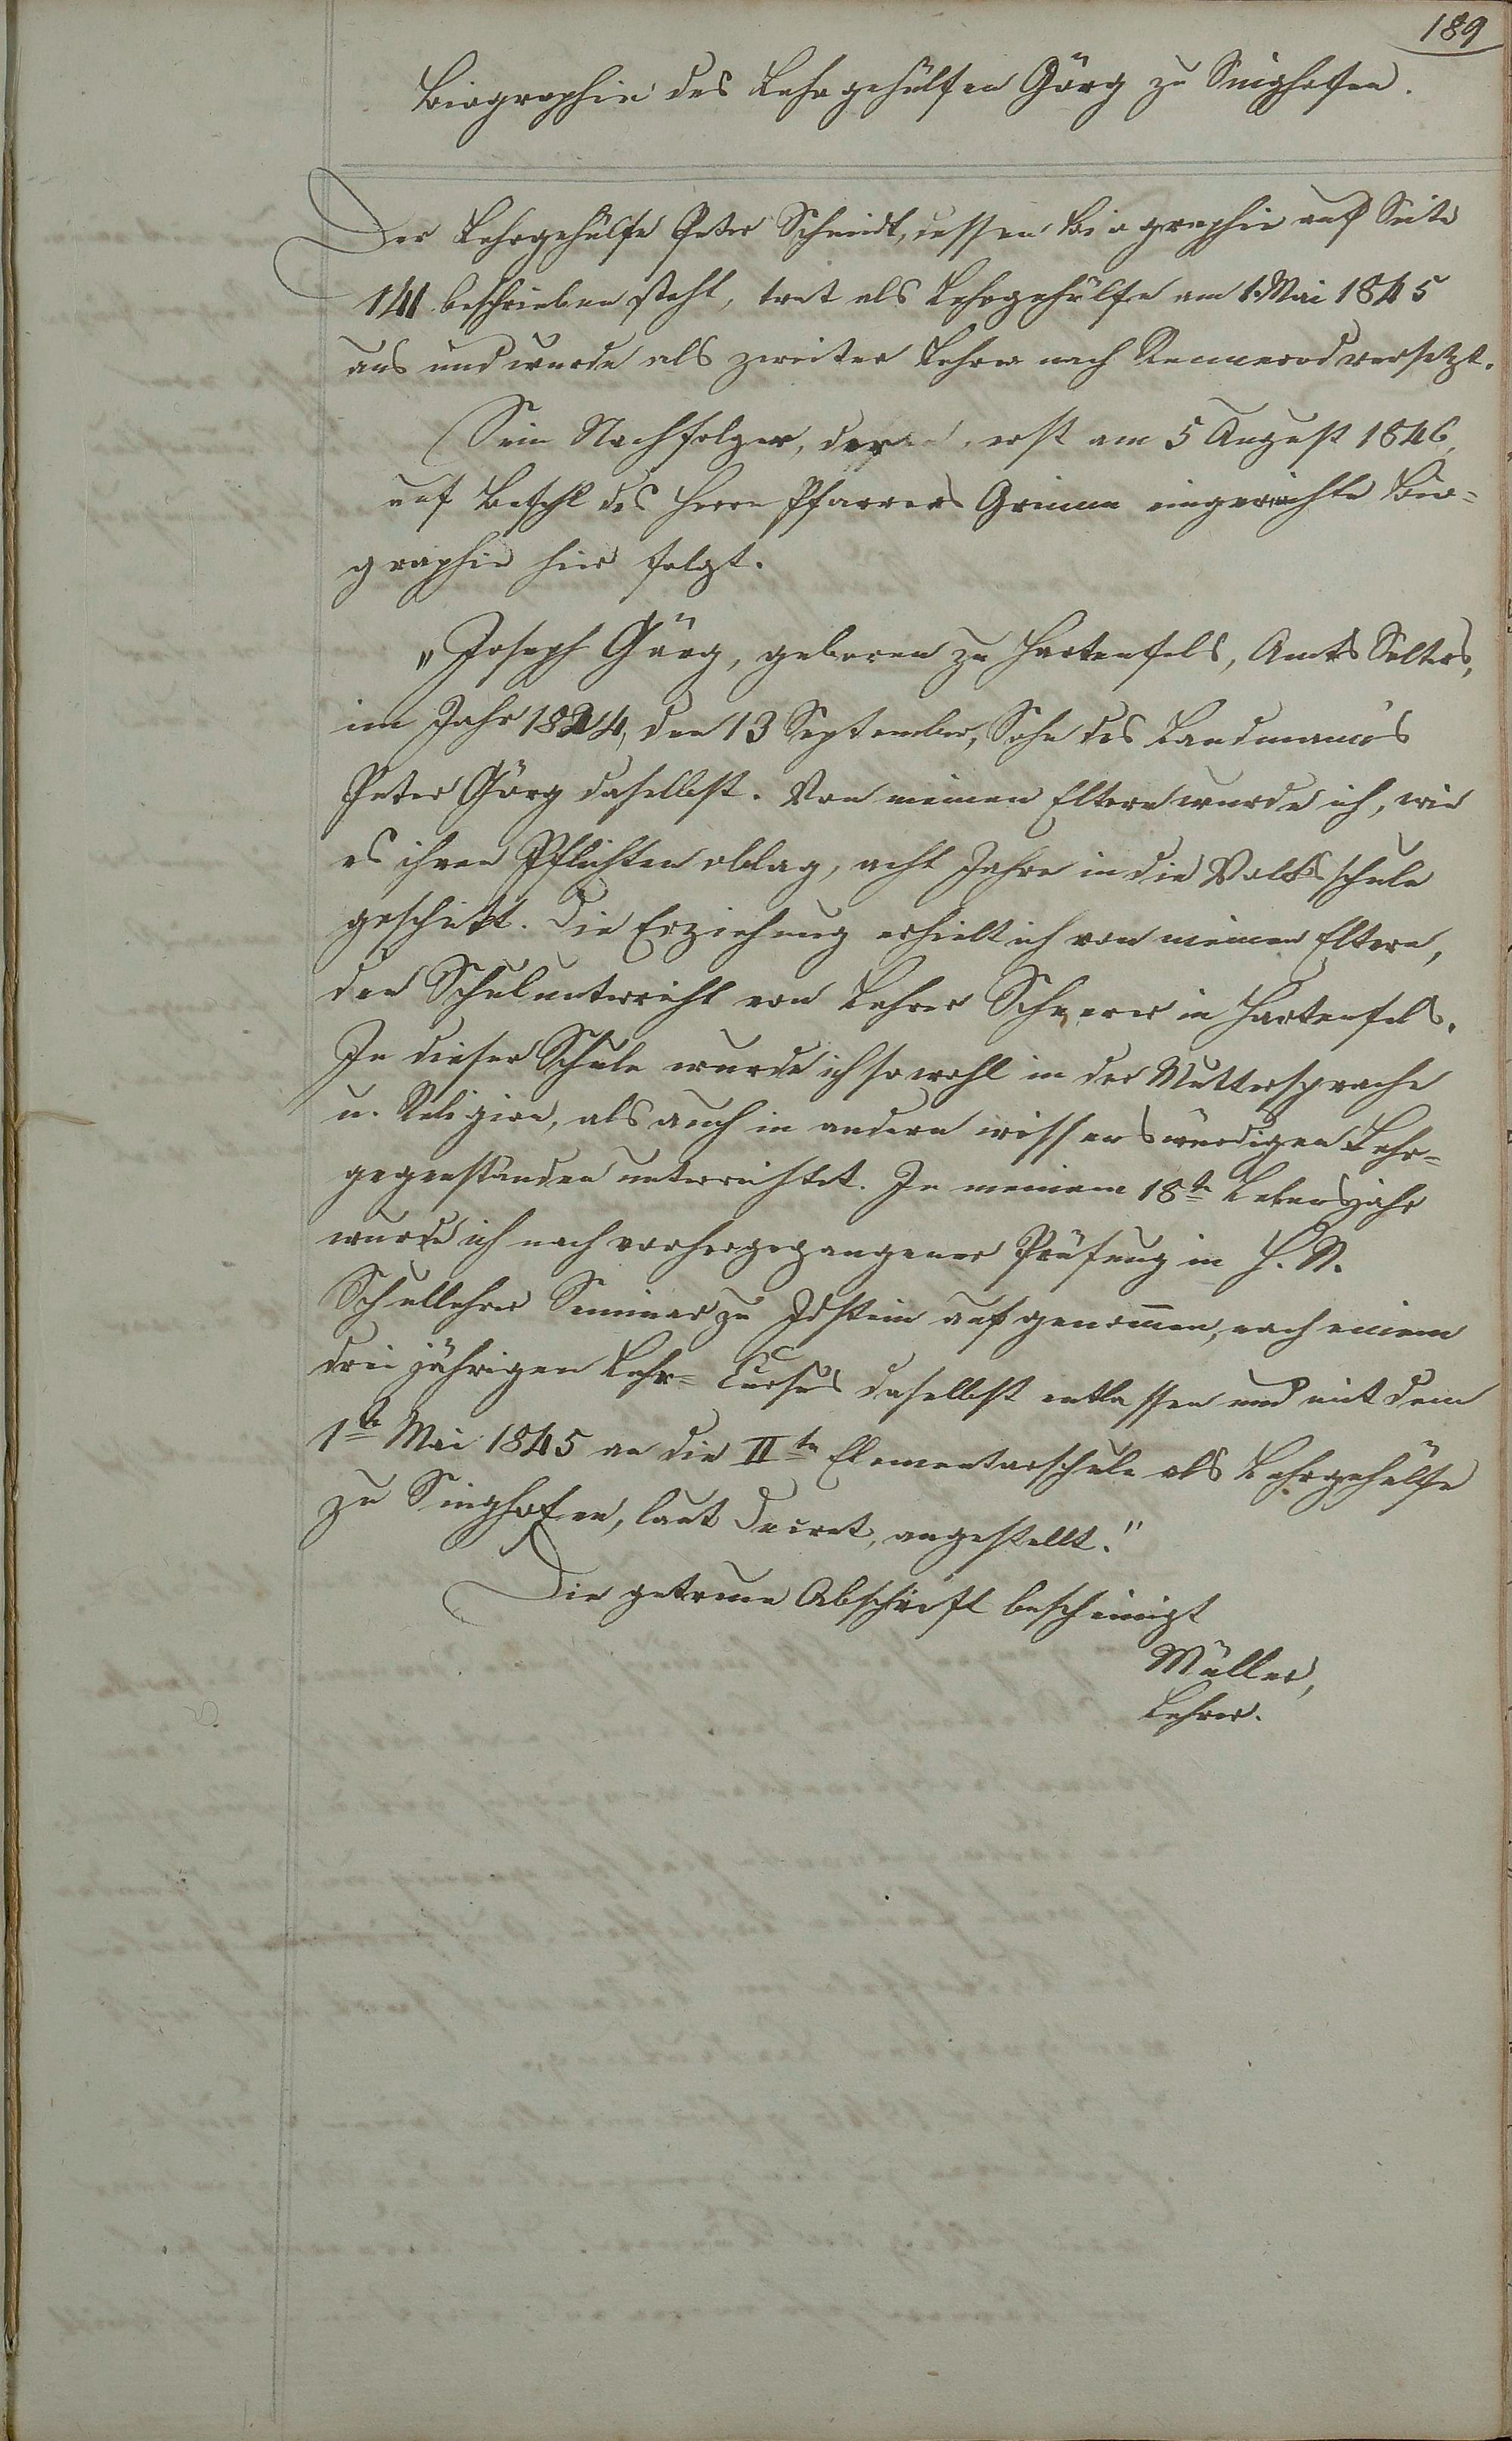 189
Biographie des Lehrgehülfen Görg zu Singhofen.
Der Lehrgehülfe Peter Schmidt, dessen Biographie auf Seite
141 beschrieben steht, trat als Lehrgehülfe am 1. Mai 1845
aus und wurde als zweiter Lehrer nach Rennerod versetzt.
Sein Nachfolger, der, erst am 5 August 1846,
auf Befehl des Herrn Pfarrers Grimm eingereichte Bio-
graphie hier folgt.
„Joseph Görg, geboren zu Hartenfels, Amts Selters,
im Jahr 1824, den 13 September, Sohn des Landmann's
Peter Görg daselbst. Von meinen Eltern wurde ich, wie
es ihren Pflichten oblag, acht Jahre in die Volksschule
geschikt. Die Erziehung erhielt ich von meinen Eltern,
den Schulunterricht von Lehrer Scheerer in Hartenfels.
In dieser Schule wurde ich sowohl in der Muttersprache
u. Religion, als auch in andern wissenswürdigen Lehr-
gegenständen unterrichtet. In meinem 18te Lebensjahr
wurde ich nach vorhergegangener Prüfung in H. N.
Schullehrer Seminar zu Idstein aufgenommen, nach einem
drei jährigen Lehr-Cursus daselbst entlassen und mit dem
1te Mai 1845 an die IIte Elementarschule als Lehrgehülfe
zu Singhofen, laut Decret, angestellt."
Die getreue Abschrift bescheinigt
Müller,
Lehrer.